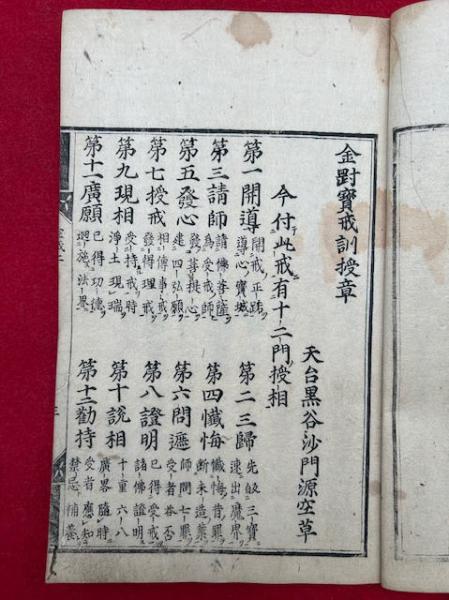 金剛寶戒訓授章
天台黒谷沙門源空草
今付此戒有十二門授相
第一開導 開戒正路
導心寶城
第二三歸 先皈三寶
速出魔界
第三請師 請佛菩薩
為受戒師
第四懺悔 懺悔昔罪
断未造業
第五發心 發菩提心
建四弘願
第六問遮 師問七罪
受者答否
第七授戒 相傳事戒
發得理戒
第八證明 已得受戒
諸佛證明
第九現相 受持戒時
淨土現瑞
第十說相 十重六八
廣畧隨時
第十一廣願 已得功德
廻施法界
第十二勸持 受者應知
禁忌補養